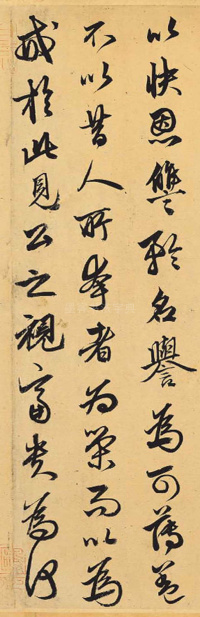 以快恩讎矜名譽為可薄蓋
不以昔人所夸者為榮而以為
戒於此見公之視富貴為何